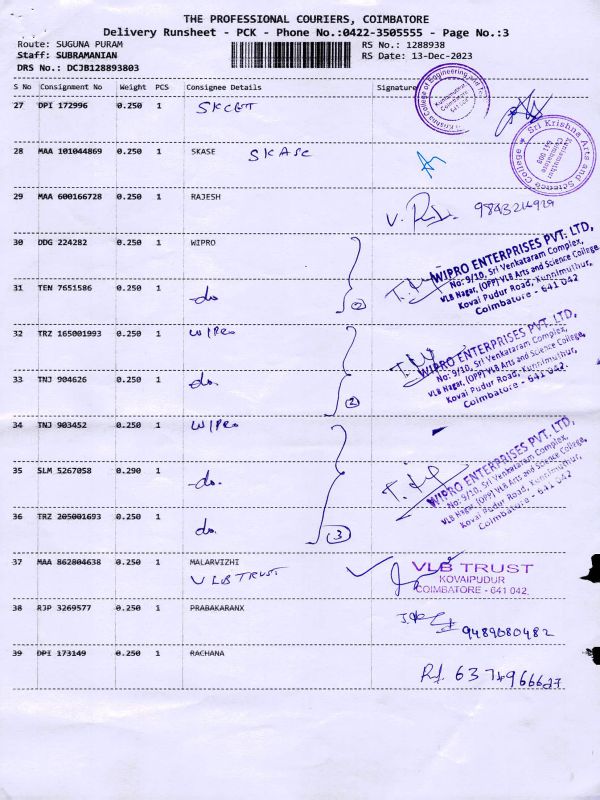 THE PROFESSIONAL COURIERS, COIMBATORE
Delivery Runsheet - PCK - Phone No.:0422-3505555 - Page No.:3
Route: SUGUNA PURAM RS No.: 1288938
Staff: SUBRAMANIAN RS Date: 13-Dec-2023
DRS No.: DCJB128893803
S No Consignment No Weight PCS Consignee Details Signature
27 DPI 172996 0.250 1 SKCET
28 MAA 101044869 0.250 1 SKASE SKASC
Sri Krishna Arts and Science College
Kuniamuthur Coimbatore 641 008
29 MAA 600166728 0.250 1 RAJESH
30 DDG 224282 0.250 1 WIPRO
WIPRO ENTERPRISES PVT. LTD,
No: 9/10, Sri Venkataram Complex,
VLB Nagar, (OPP) VLB Arts and Science College,
Kovai Pudur Road, Kunnimuthur,
Coimbatore - 641 042
31 TEN 7651586 0.250 1 do. 2
32 TRZ 165001993 0.250 1 WIPRO
WIPRO ENTERPRISES PVT. LTD,
No: 9/10, Sri Venkataram Complex,
VLB Nagar, (OPP) VLB Arts and Science College,
Kovai Pudur Road, Kunnimuthur,
Coimbatore - 641 042.
33 TNJ 904626 0.250 1 do. 2
34 TNJ 903452 0.250 1 WIPRO
WIPRO ENTERPRISES PVT. LTD,
No: 9/10, Sri Venkataram Complex,
VLB Nagar, (OPP) VLB Arts and Science College,
Kovai Pudur Road, Kunnimuthur,
Coimbatore - 641 042.
35 SLM 5267058 0.290 1 do.
36 TRZ 205001693 0.250 1 do. 3
37 MAA 862804638 0.250 1 MALARVIZHI
VLB TRUST
VLB TRUST
KOVAIPUDUR
COIMBATORE - 641 042.
38 RJP 3269577 0.250 1 PRABAKARANX
9489080482
39 DPI 173149 0.250 1 RACHANA